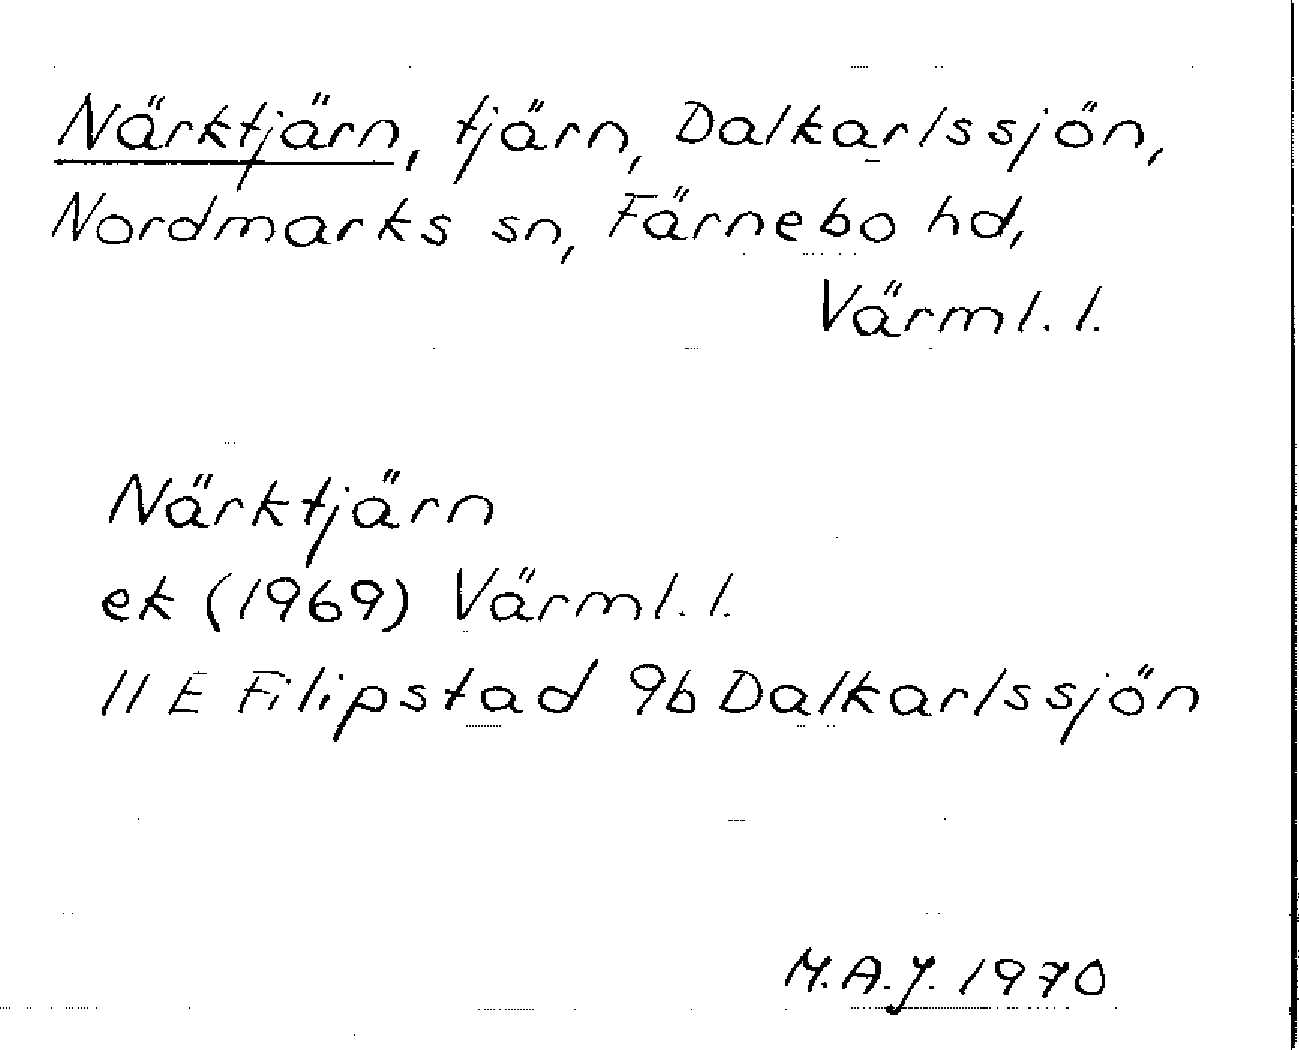 Närktjärn, tjärn, Dalkarlssjön,
Nordmarks sn, Färnebo hd,
Värml. l.
Närktjärn
ek (1969) Värml. l.
11 E Filipstad 9b Dalkarlssjön
M.A.J. 1970